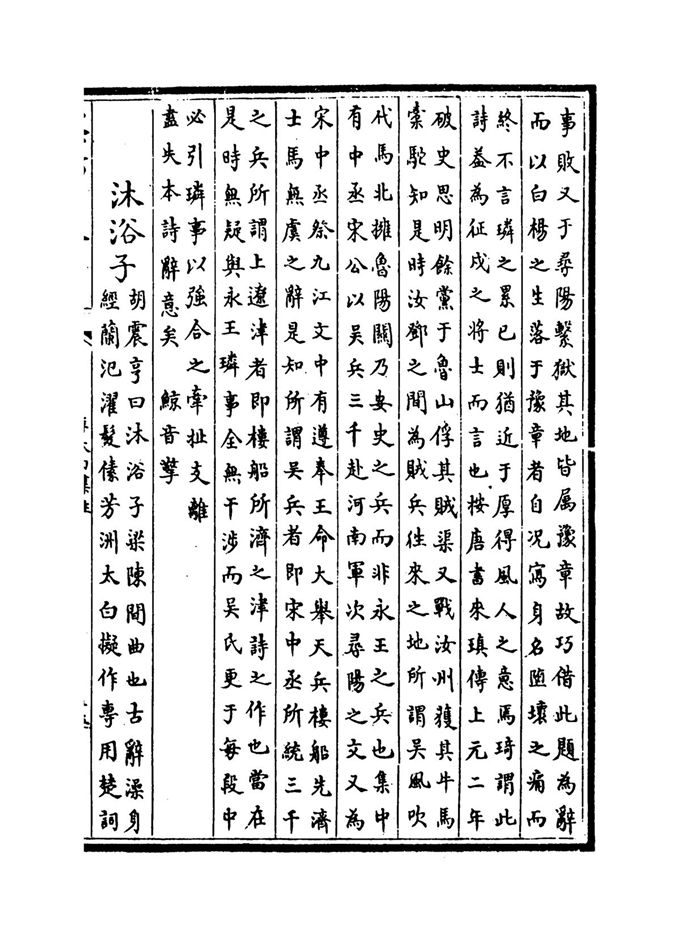 事敗又于尋陽繫獄其地皆属豫章故巧借此題為辭
而以白楊之生落于豫章者自况寫身名堕壞之痛而
終不言璘之累已則猶近于厚得風人之意焉琦謂此
詩葢為征戍之將士而言也按唐書來瑱傳上元二年
破史思明餘黨于魯山俘其賊渠又戰汝州獲其牛馬
橐駝知是時汝鄧之間為賊兵徃來之地所謂吴風吹
代馬北擁魯陽關乃安史之兵而非永王之兵也集中
有中丞宋公以吴兵三千赴河南軍次尋陽之文又為
宋中丞祭九江文中有遵奉王命大舉天兵樓船先濟
士馬無虞之辭是知所謂吴兵者即宋中丞所統三千
之兵所謂上遼津者即樓船所濟之津詩之作也當在
是時無疑與永王璘事全無干涉而吴氏更于每段中
必引璘事以強合之牽扯支離
盡失本詩辭意矣 鯨音擎
沐浴子
胡震亨曰沐浴子梁陳間曲也古辭澡身
經蘭汜濯髮傃芳洲太白擬作専用楚詞